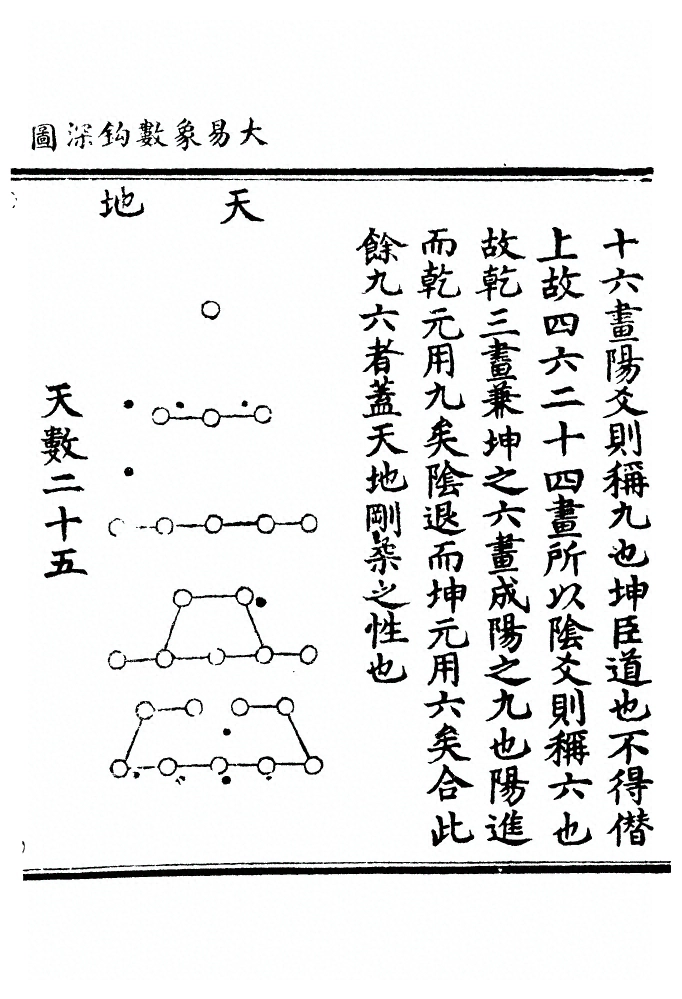 大易象數鈎深圖
十六畫陽爻則稱九也坤臣道也不得僭
上故四六二十四畫所以陰爻則稱六也
故乾三畫兼坤之六畫成陽之九也陽進
而乾元用九矣陰退而坤元用六矣合此
餘九六者蓋天地剛柔之性也
天
地
天數二十五